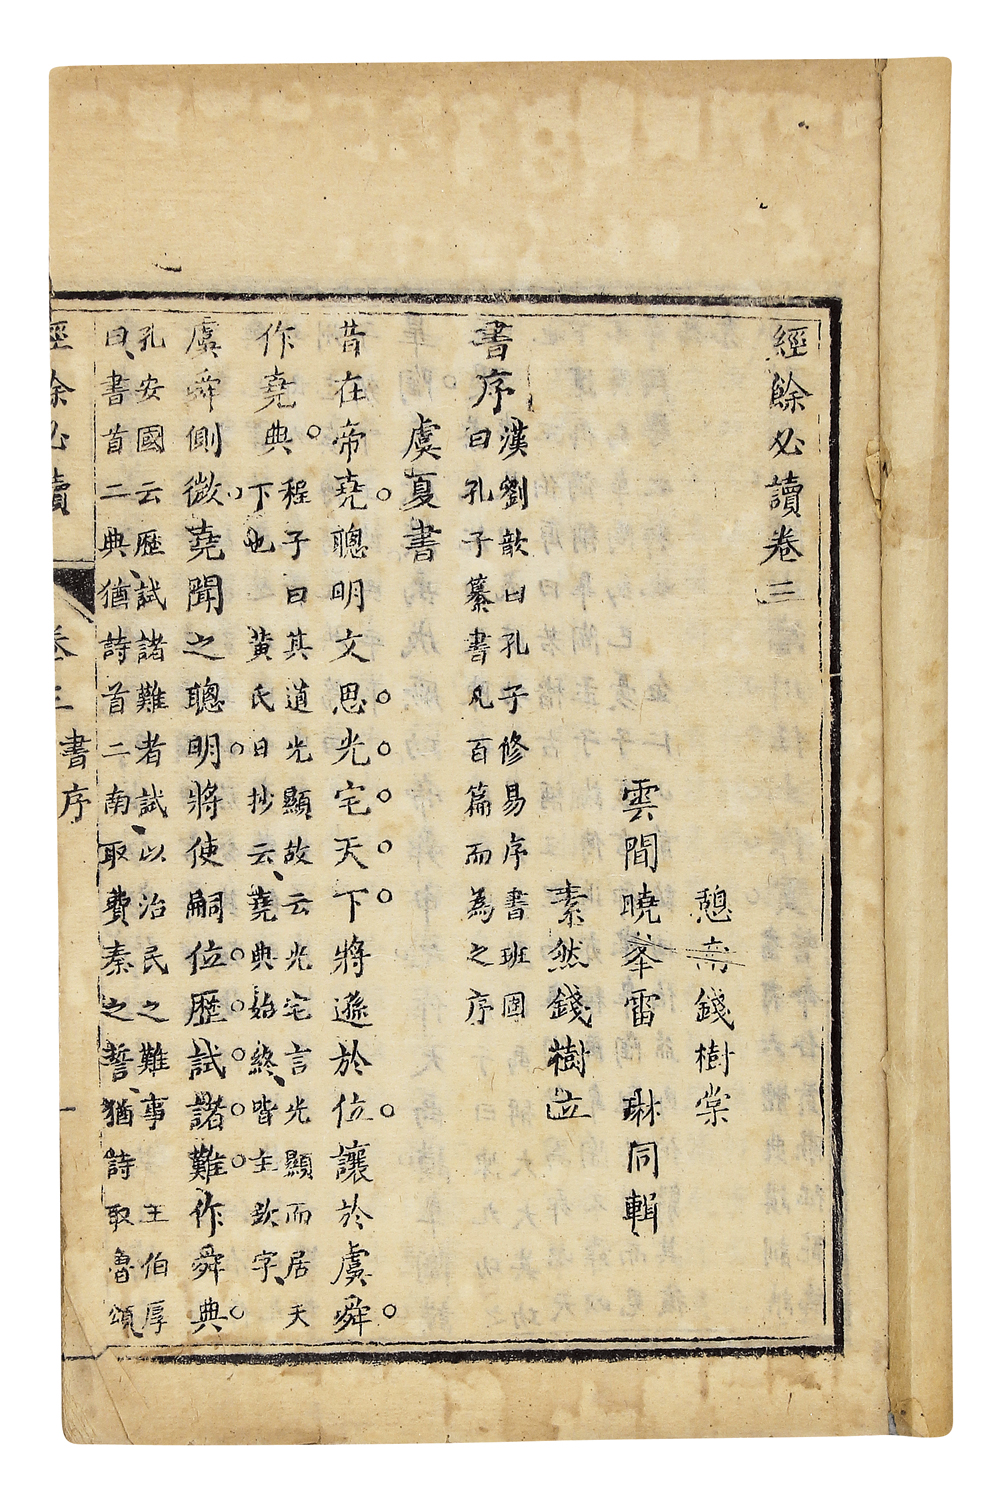 經餘必讀卷三
憩南錢樹棠
雲間曉峯雷 琳同輯
素然錢樹立
書序
漢劉歆曰孔子修易序書班固
曰孔子纂書凡百篇而為之序
虞夏書
昔在帝堯聰明文思光宅天下將遜於位讓於虞舜
作堯典
程子曰其道光顯故云光宅言光顯而居天
下也 黄氏日抄云堯典始終皆主欽字
虞舜側微堯聞之聰明將使嗣位歷試諸難作舜典
孔安國云歷試諸難者試以治民之難事 王伯厚
曰書首二典猶詩首二南取費秦之誓猶詩取魯頌
經餘必讀
卷三
書序
一